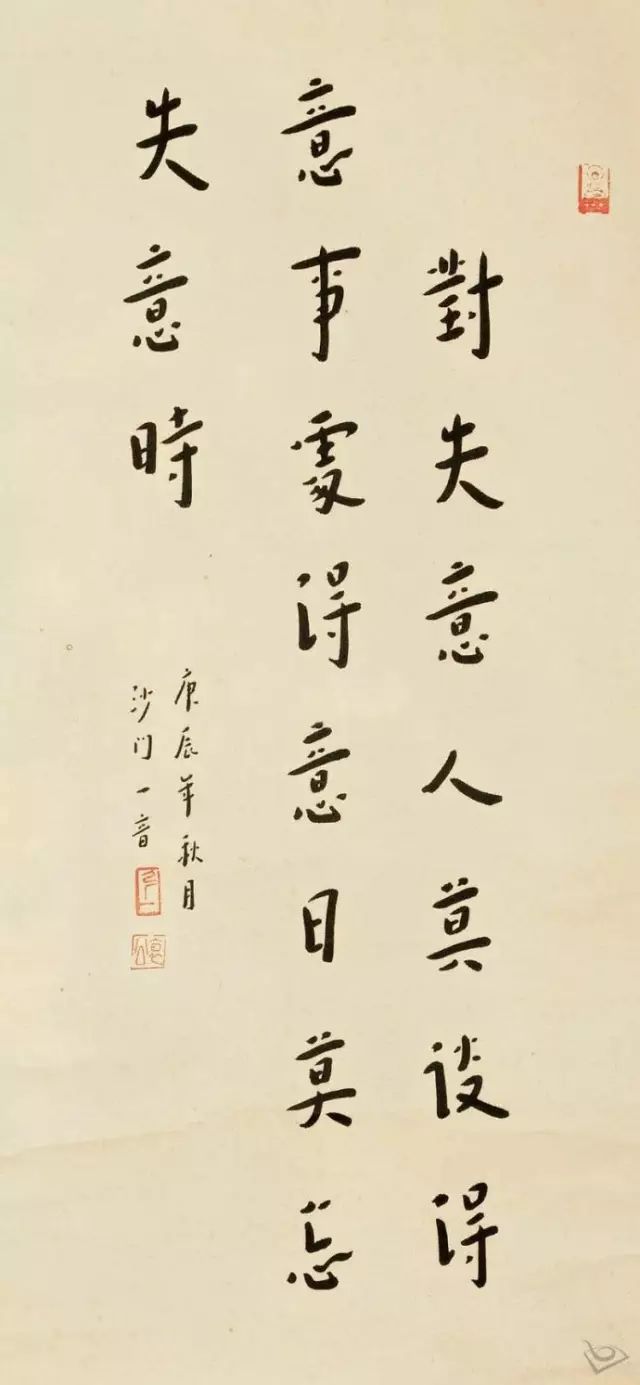 對失意人莫談得
意事處得意日莫忘
失意時
庚辰年秋月
沙門一音